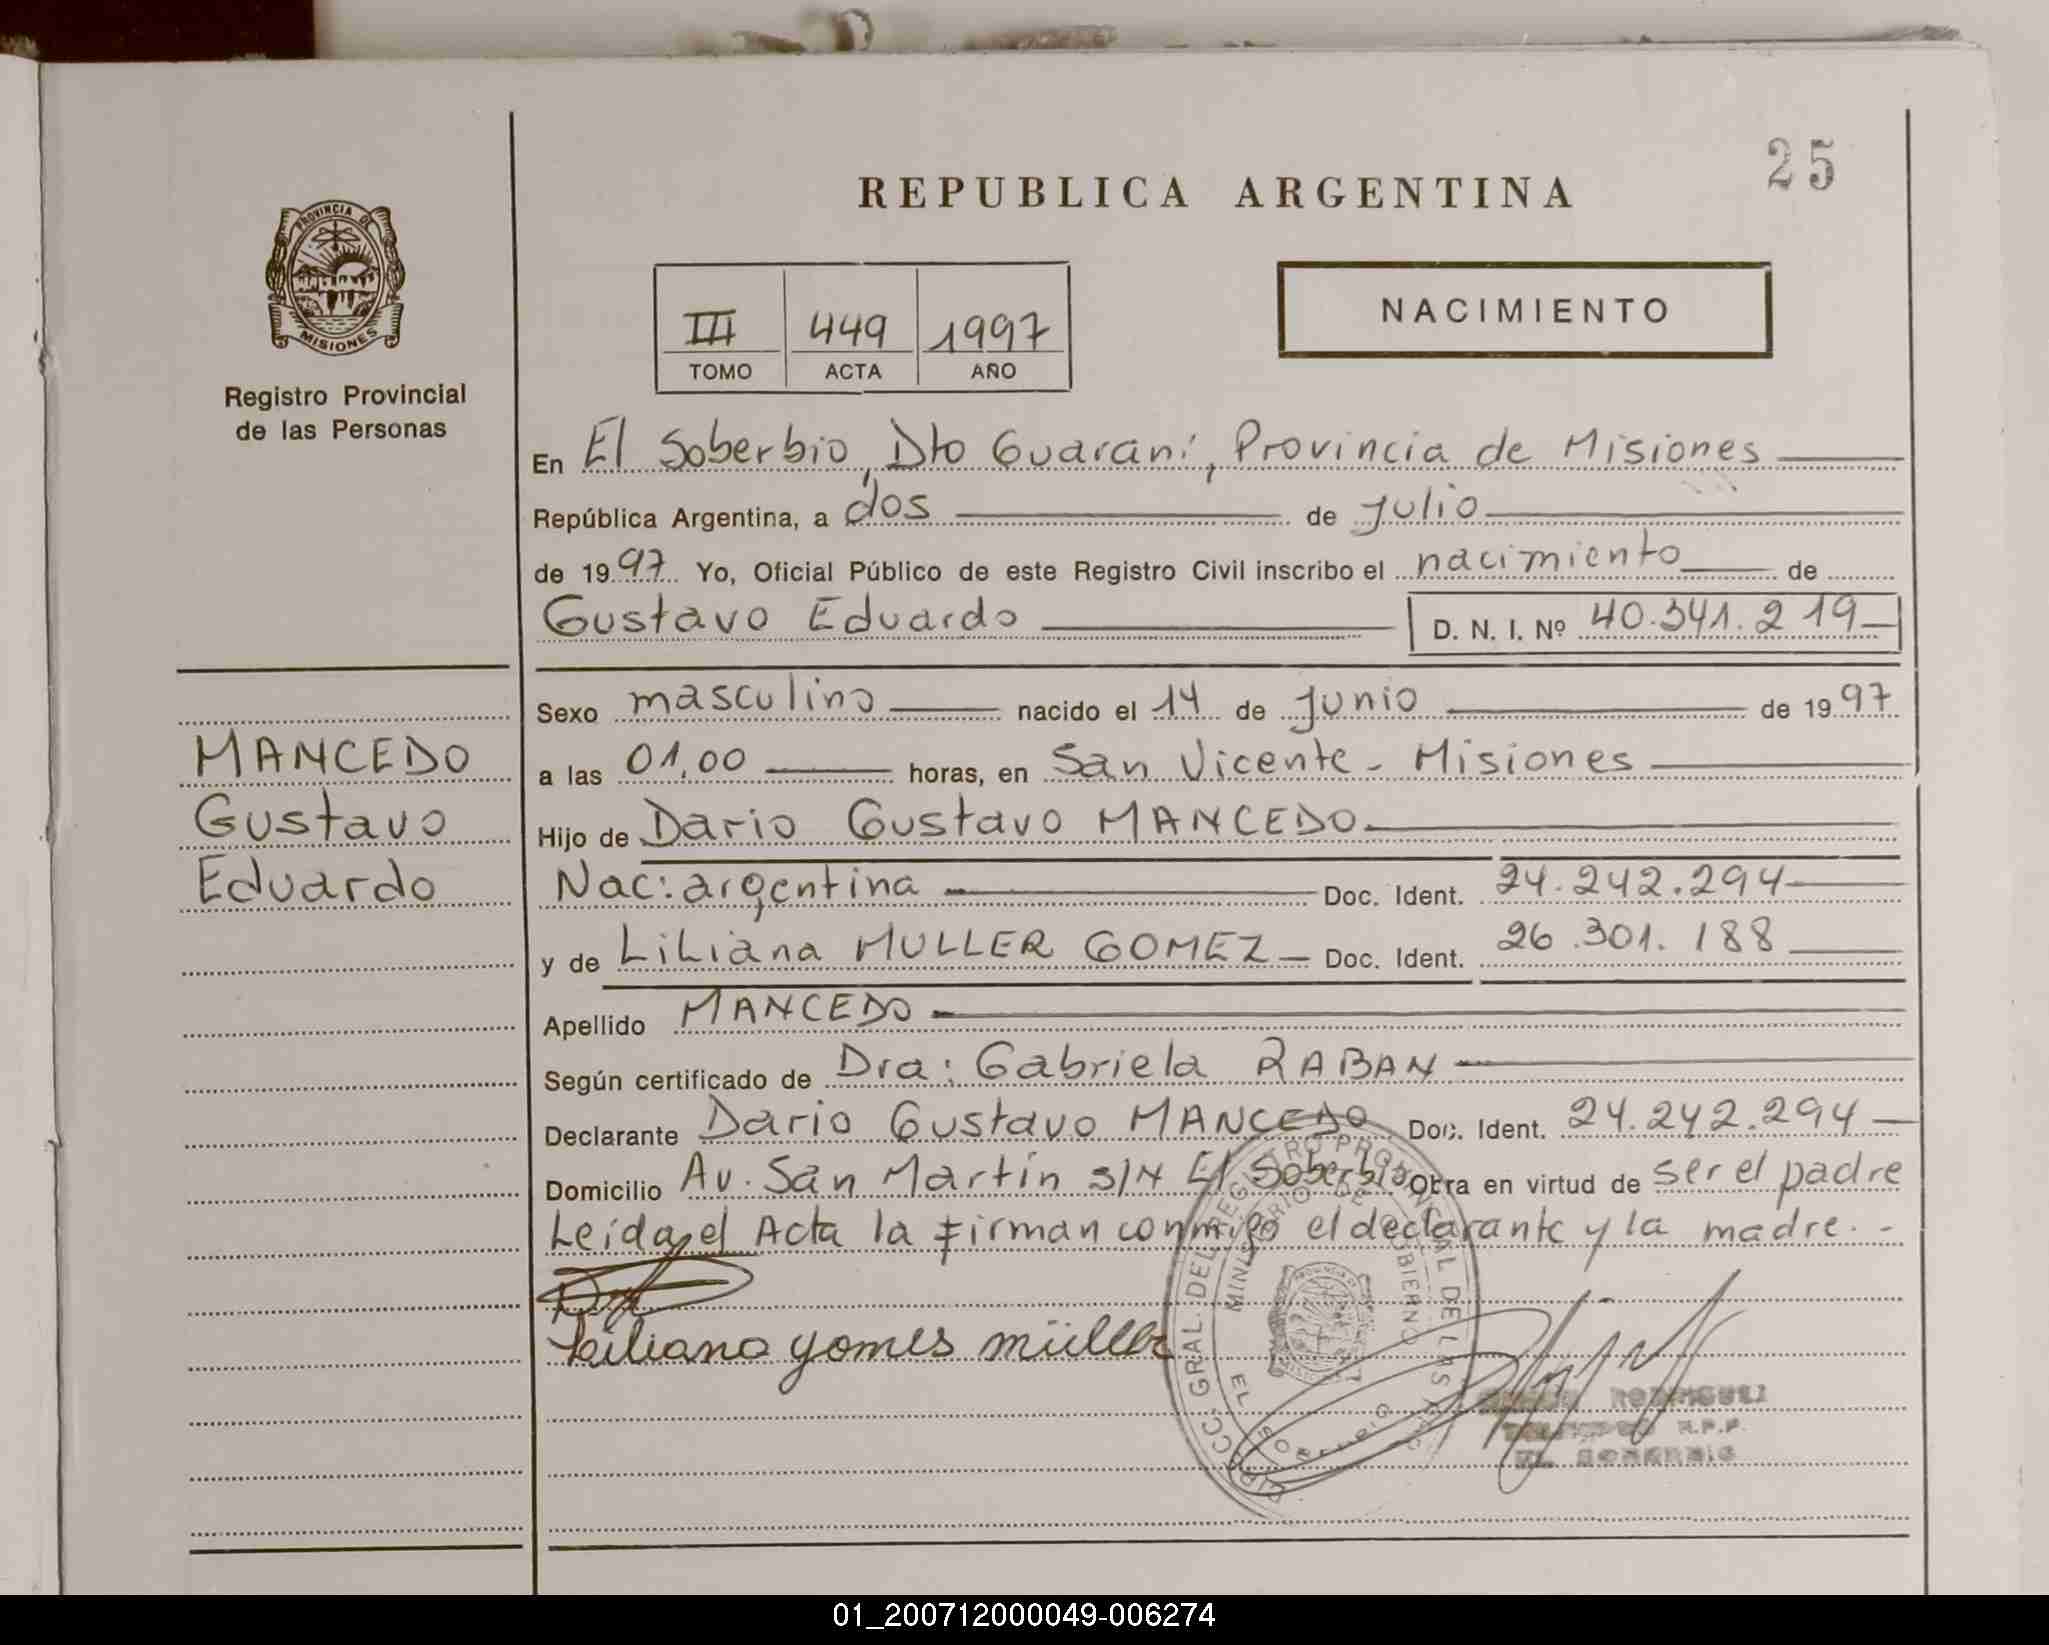 25
REPUBLICA ARGENTINA
PROVINCIA DE
MISIONES
Registro Provincial
de las Personas
III 449 1997
TOMO ACTA AÑO
NACIMIENTO
En El Soberbio, Dto Guaraní, Provincia de Misiones
República Argentina, a dos de Julio
de 1997 Yo, Oficial Público de este Registro Civil inscribo el nacimiento de
Gustavo Eduardo D. N. I. Nº 40.341.219
Sexo masculino nacido el 14 de Junio de 1997
a las 01,00 horas, en San Vicente - Misiones
Hijo de Dario Gustavo MANCEDO
Nac: argentina Doc. Ident. 24.242.294
y de Liliana MULLER GOMEZ Doc. Ident. 26.301.188
Apellido MANCEDO
Según certificado de Dra: Gabriela RABAN
Declarante Dario Gustavo MANCEDO Doc. Ident. 24.242.294
Domicilio Av. San Martín S/N El Soberbio Obra en virtud de ser el padre
Leída el Acta la firman conmigo el declarante y la madre. -
MANCEDO
Gustavo
Eduardo
Liliana gomes müller
DIRECC. GRAL. DEL REGISTRO PROVINCIAL DE LAS
MINISTERIO DE GOBIERNO
EL SOBERBIO
R.P.P.
EL SOBERBIO
01_200712000049-006274